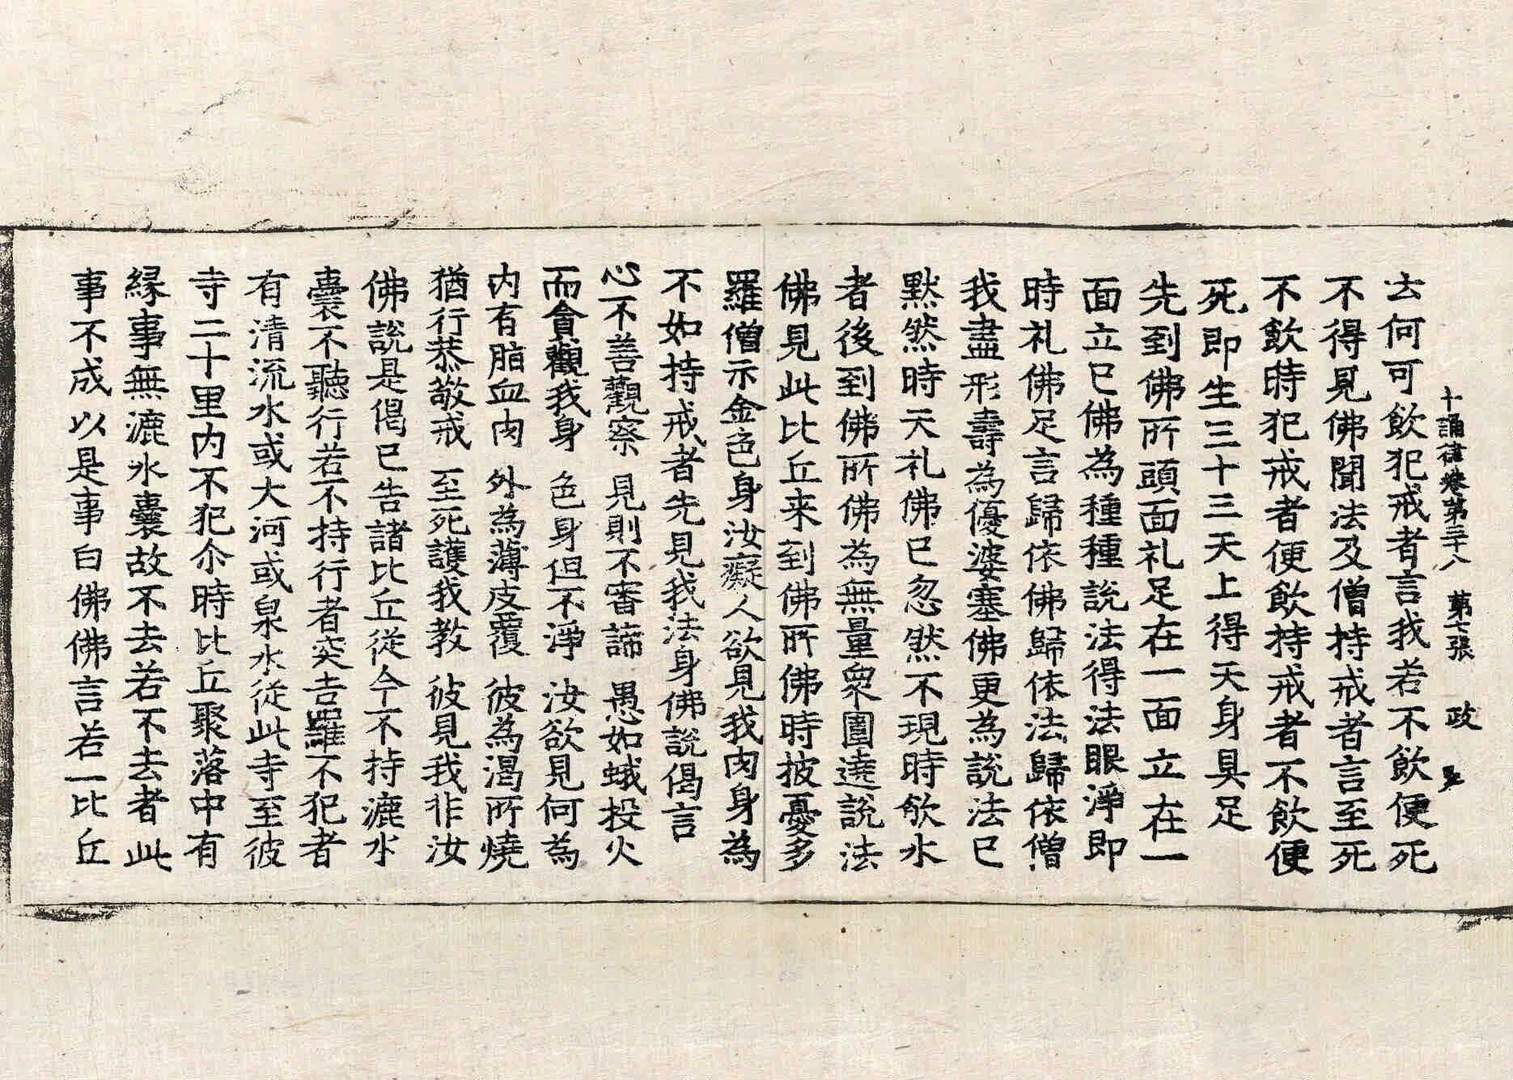 十誦律卷第三十八　第七張　政
去何可飲犯戒者言我若不飲便死
不得見佛聞法及僧持戒者言至死
不飲時犯戒者便飲持戒者不飲便
死即生三十三天上得天身具足
先到佛所頭面礼足在一面立在一
面立已佛為種種說法得法眼淨即
時礼佛足言歸依佛歸依法歸依僧
我盡形壽為優婆塞佛更為說法已
默然時天礼佛已忽然不現時飲水
者後到佛所佛為無量衆圍遶說法
佛見此比丘来到佛所佛時披憂多
羅僧示金色身汝癡人欲見我肉身為
不如持戒者先見我法身佛說偈言
心不善觀察　見則不審諦　愚如蛾投火
而貪觀我身　色身但不淨　汝欲見何為
内有脂血肉　外為薄皮覆　彼為渴所燒
猶行恭敬戒　至死護我教　彼見我非汝
佛說是偈已告諸比丘從今不持漉水
囊不聽行若不持行者突吉羅不犯者
有清流水或大河或泉水從此寺至彼
寺二十里内不犯尒時比丘聚落中有
緣事無漉水囊故不去若不去者此
事不成以是事白佛佛言若一比丘